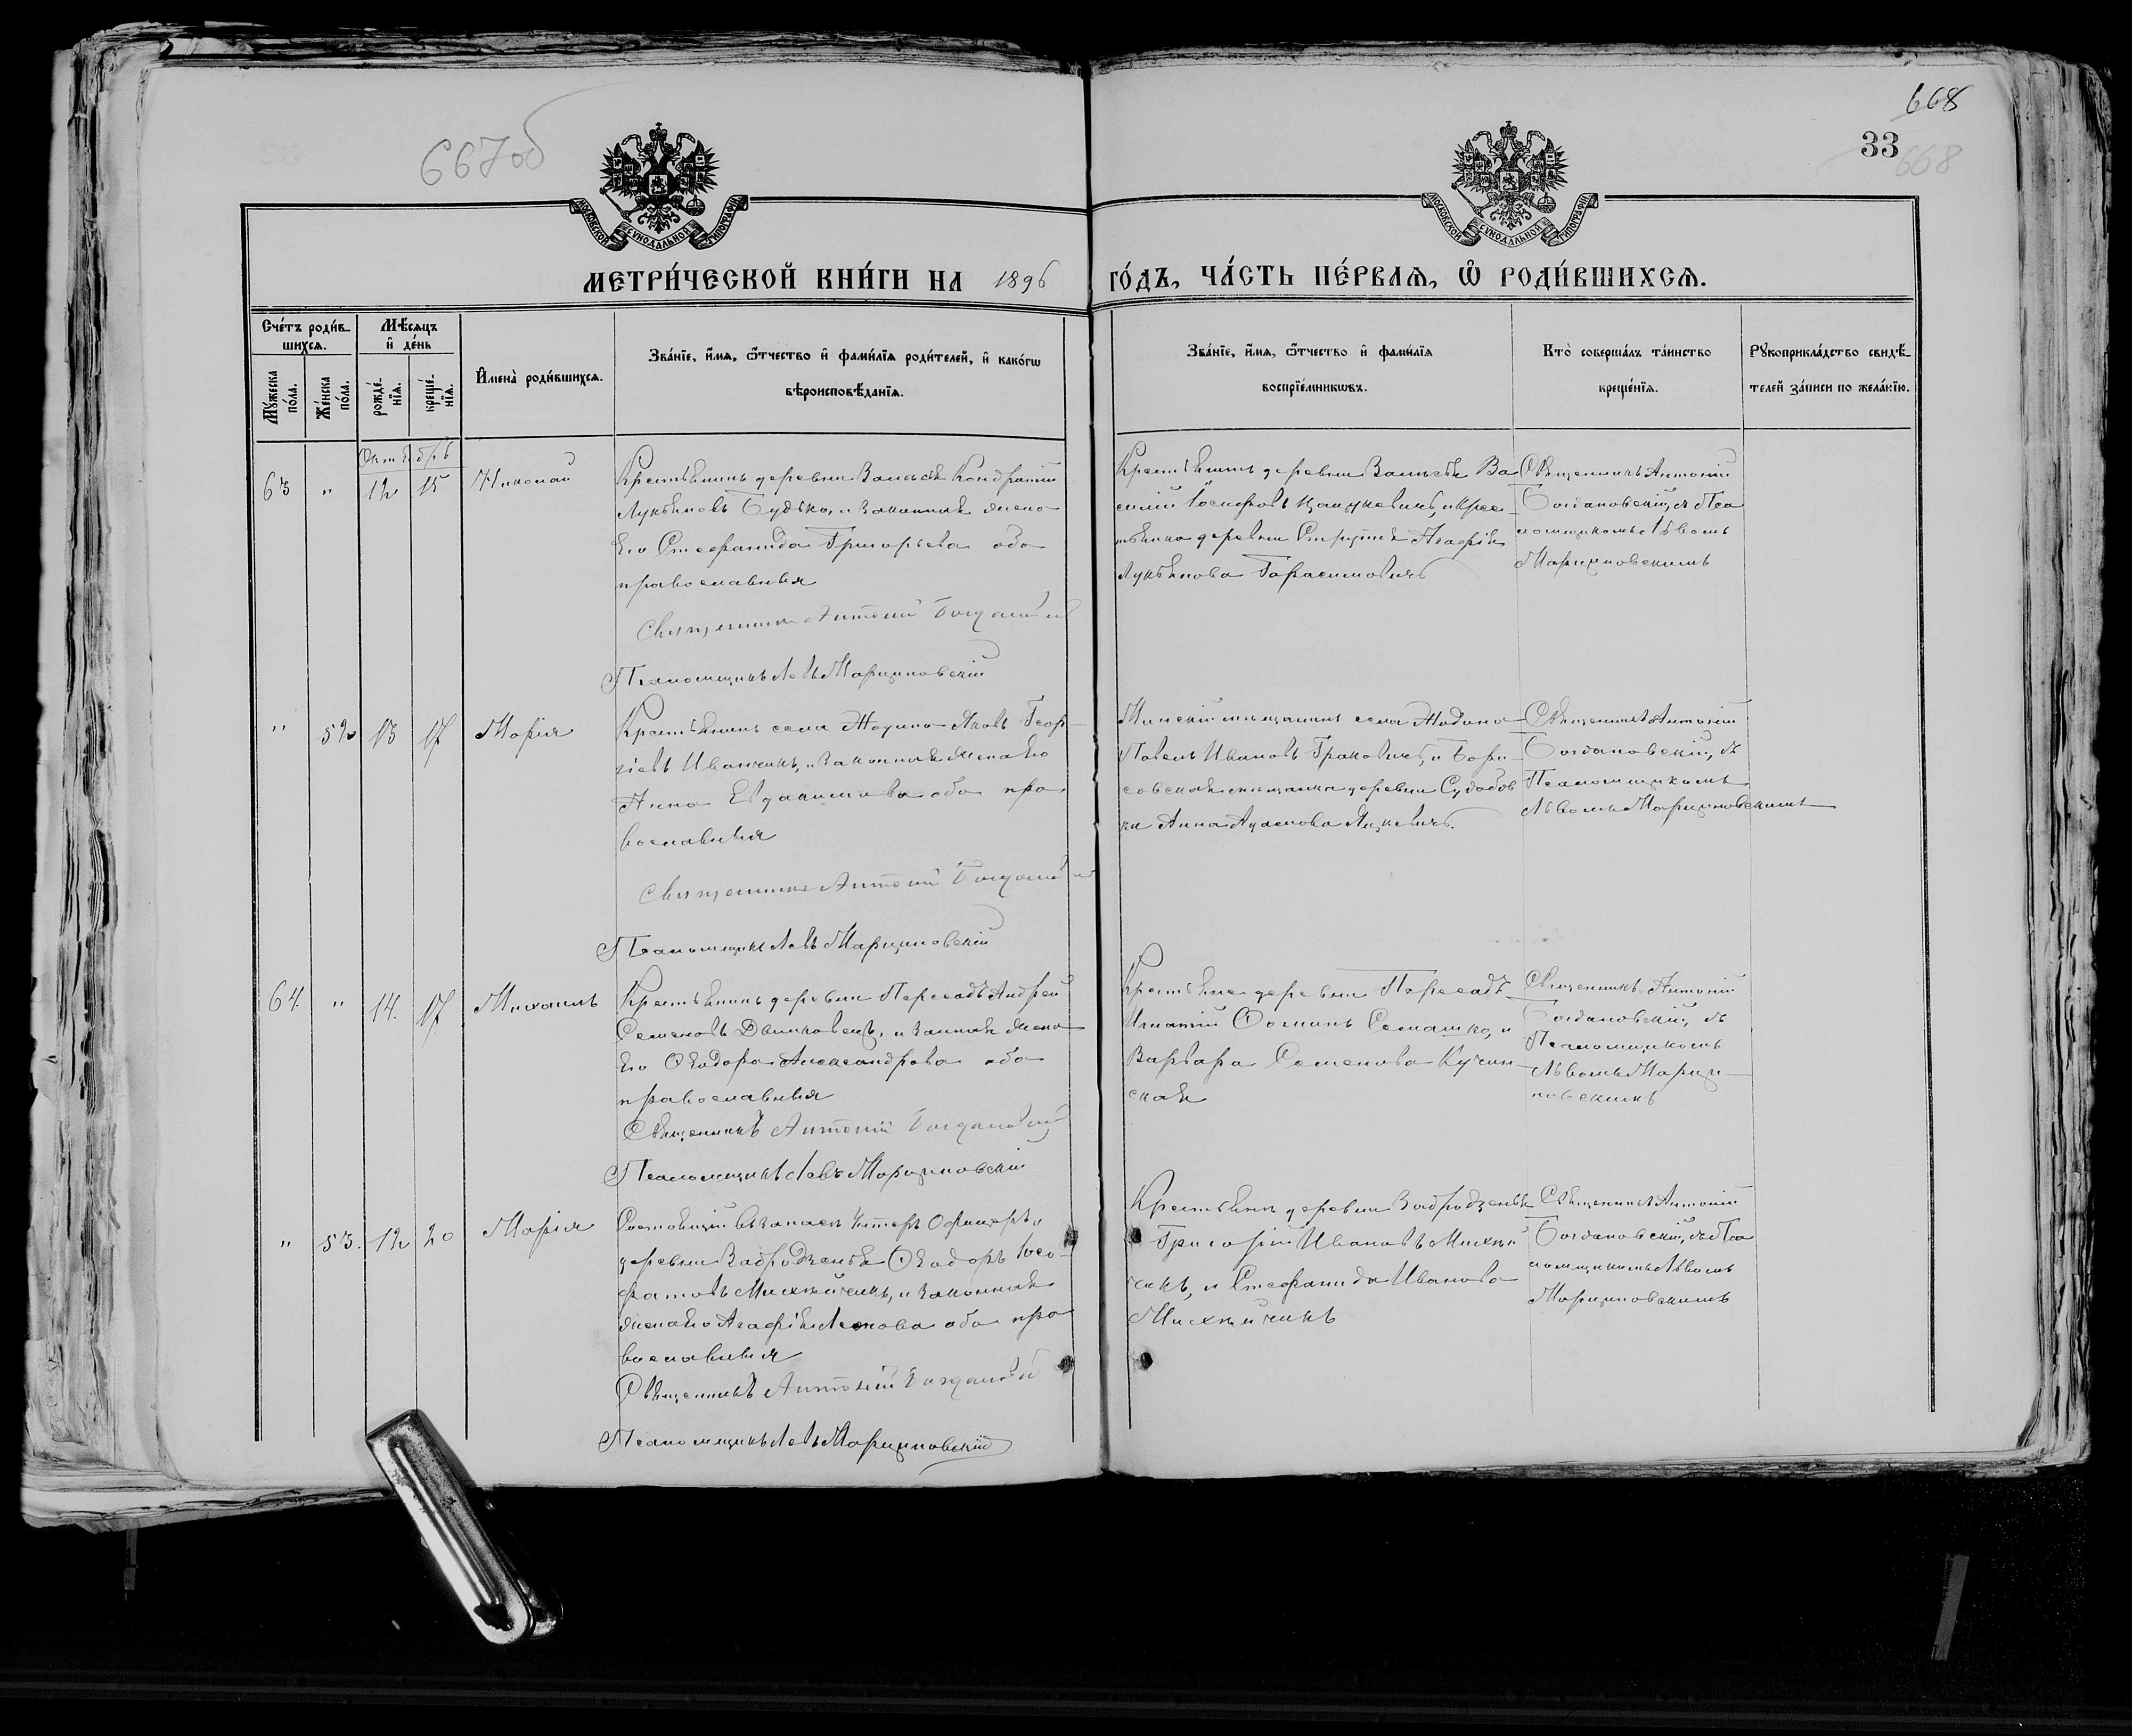 667об
668
33
668
МОСКОВСКОЙ СѴНОДАЛЬНОЙ ТИПОГРАФІИ
МОСКОВСКОЙ СѴНОДАЛЬНОЙ ТИПОГРАФІИ
МЕТРИ́ЧЕСКОЙ КНИ́ГИ НА 1896 ГО́ДЪ, ЧА́СТЬ ПЕ́РВАѦ, Ѿ РОДИ́ВШИХСѦ.
Сче́тъ роди́в-
шихсѧ.
Мꙋ́жеска по́ла.
Же́нска по́ла.
Мѣ́сѧцъ
и҆ де́нь
рожде́-
нїѧ.
креще́-
нїѧ.
И҆мена̀ роди́вшихсѧ.
Зва́нїе, и҆́мѧ, ѻ҆́тчество и҆ фами́лїѧ роди́телей, и҆ како́гѡ
вѣроисповѣ́данїѧ.
Зва́нїе, и҆́мѧ, ѻ҆́тчество и҆ фами́лїѧ
воспрїе́мникѡвъ.
Кто̀ соверша́лъ та́инство
креще́нїѧ.
Рꙋкоприкла́дство свидѣ́-
телей за́писи по жела́нїю.
Октябрь
63 " 12 15 Николай
Крестьянинъ деревни Кондратій
Лукьяновъ Будько, и законная жена
его Стефанида Григорьева оба
православныя
Священникъ Антоній Богданов
Псаломщикъ Левъ Марциновскій
Крестьянинъ деревни Ва
силій Іосифовъ и крес
тьянка деревни Агафія
Лукьянова Герасимовичъ
Священникъ Антоній
Богдановскій, съ Пса
ломщикомъ Львомъ
Марциновскимъ
" 52 13 17 Марія
Крестьянинъ села Жодина Яковъ Геор-
гіевъ Иванчикъ, и законная жена его
Анна Евдокимова оба пра
вославныя
Священникъ Антоній Богданов
Псаломщикъ Левъ Марциновскій
Минскій мѣщанинъ села Жодина
Павелъ Ивановъ Граковичъ, и Бори-
совская мѣщанка деревни Судобов
ки Анна Адамова Яцкевичъ.
Священникъ Антоній
Богдановскій, съ
Псаломщикомъ
Львомъ Марциновскимъ
64. " 14. 17 Михаилъ
Крестьянинъ деревни Пересадъ Андрей
Семеновъ и законная жена
его Ѳеодора Александрова оба
православныя
Священникъ Антоній Богдановскій
Псаломщикъ Левъ Марциновскій
Крестьяне деревни Пересадъ
Игнатій Ѳоминъ Семашко, и
Варвара Семенова Кучин
ская
Священникъ Антоній
Богдановскій, съ
Псаломщикомъ
Львомъ Марци-
новскимъ
" 53. 12 20 Марія
Состоящій въ запасѣ Унтеръ Офицеръ
деревни Забродзенья Ѳеодоръ Іоса-
фатовъ Михнійчикъ, и законная
жена его Агафія оба пра
вославныя
Священникъ Антоній Богданов
Псаломщикъ Левъ Марциновскій
Крестьяне деревни Забродзенья
Григорій Ивановъ Михній
чикъ, и Стефанида Иванова
Михнійчикъ
Священникъ Антоній
Богдановскій, съ Пса
ломщикомъ Львомъ
Марциновскимъ